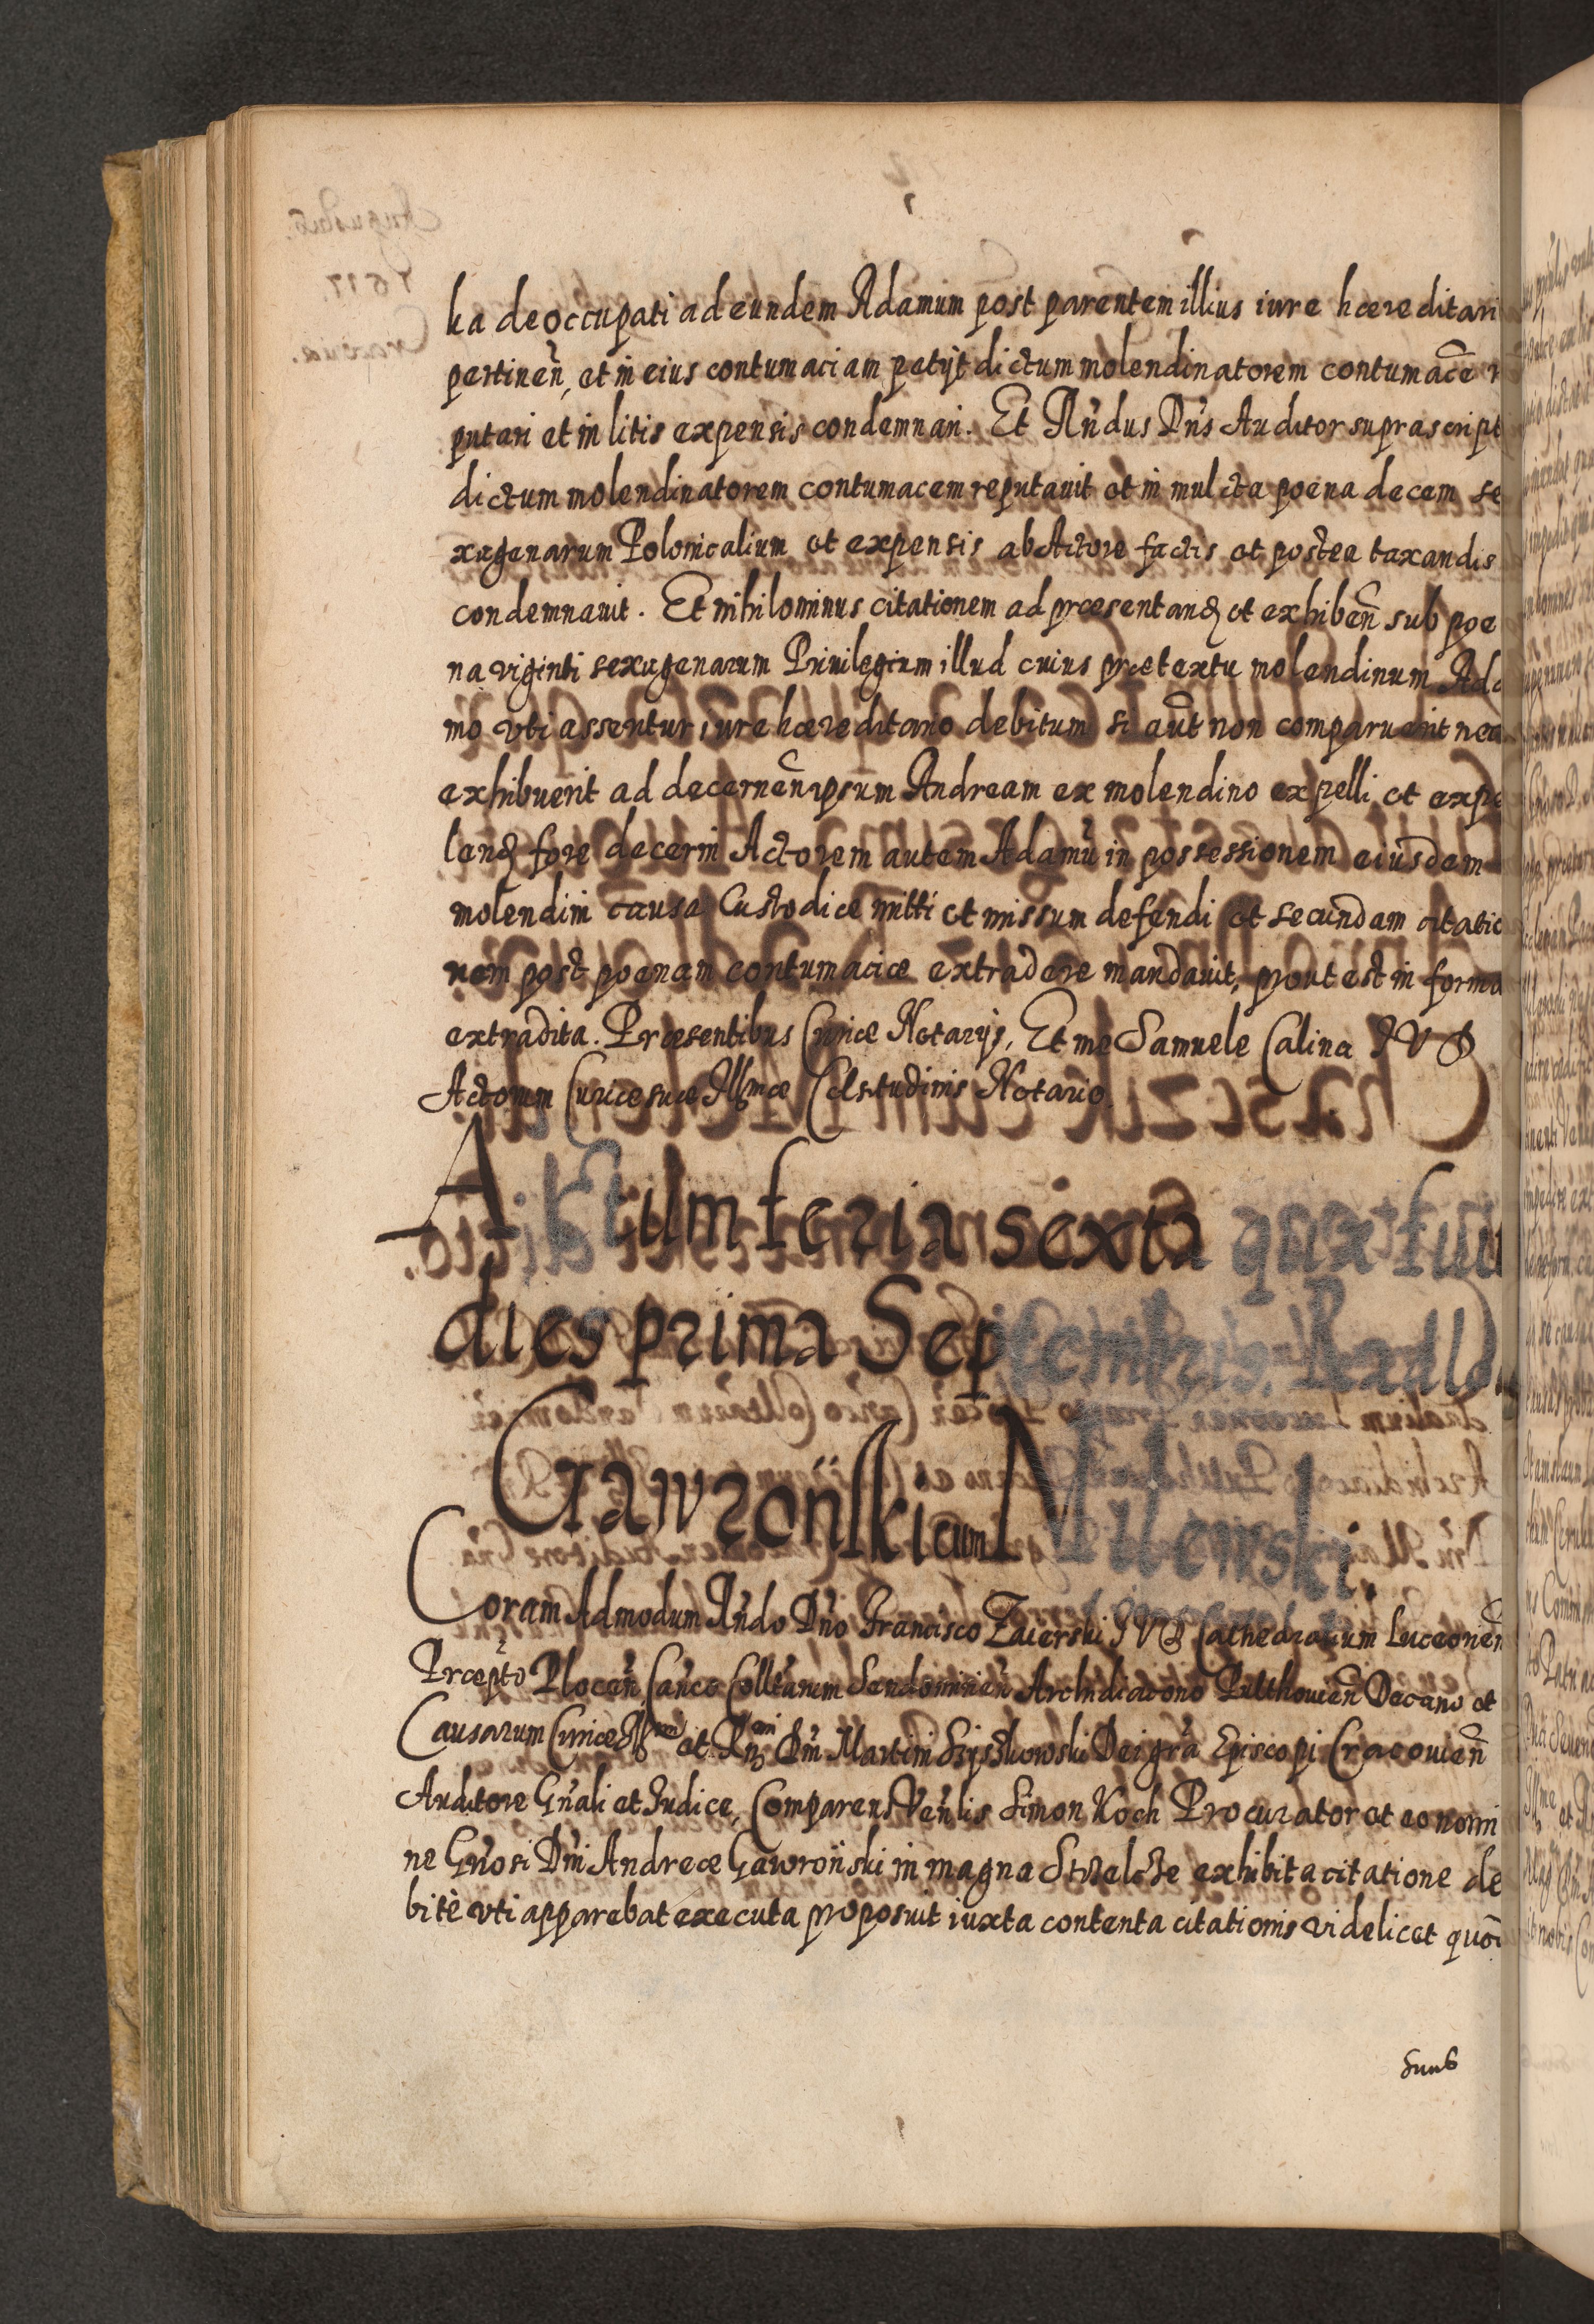 ka deoccupati ad eundem Adamum post parentem illius iure hæreditari
pertineñ, et in eius contumaciam petijt dictum molendinatorem contumacẽ r
putari et in litis expensis condemnari. Et Rñdus Dñs Auditor suprascript
dictum molendinatorem contumacem reputauit et in mulcta poena decem se
xagenarum Polonicalium et expensis ab Actore factis et postea taxandis
condemnauit. Et nihilominus citationem ad præsentanđ et exhibeñ sub poe
na viginti sexagenarum Priuilegium illud cuius prætextu molendinum Ada
mo vti asseritur iure hæreditario debitum si aũt non comparuerit nec
exhibuerit ad decerneñ ipsum Andream ex molendino expelli et expe
lenđ fore decerni Actorem autem Adamũ in possessionem eiusdem
molendini causa Custodiæ mitti et missum defendi et secundam citatio
nem post poenam contumaciæ extradere mandauit, prout est in forma
extradita. Præsentibus Curiæ Notarijs, Et me Samuele Calina I V D
Actorum Curiæ suæ Illmæ Celsitudinis Notario.
Actum feria sexta quæ fuit
dies prima Septembris. Radło.
Gawroński cum Milewski.
Coram Admodum Rñdo Dño Francisco Zaierski I V D Cathedralium Luceorieñ
Præpto Ploceñ, Canco Colltarum Sendomirieñ Archidiacono Pulthouieñ Decano et
Causarum Curiæ Illmi et Rmi Dñi Martini Szyszkowski Dei grã Episcopi Cracouieñ
Auditore Gñali et Iudice, Comparens Veñlis Simon Koch Procurator et eo nomi
ne Gñosi Dñi Andreæ Gawroński in magna exhibita citatione de
bitè vti apparebat executa proposuit iuxta contenta citationis videlicet quõ
Suus